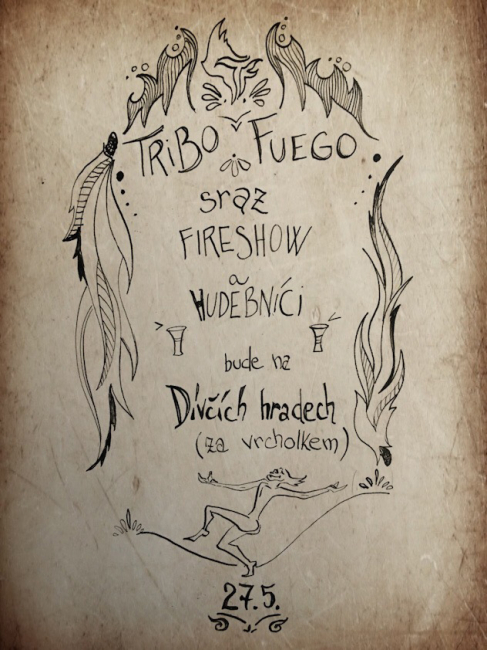 TRiBO FUEGO
sraz
FIRESHOW
a
HUDEBNÍCI
bude na
Dívčích hradech
(za vrcholkem)
27.5.